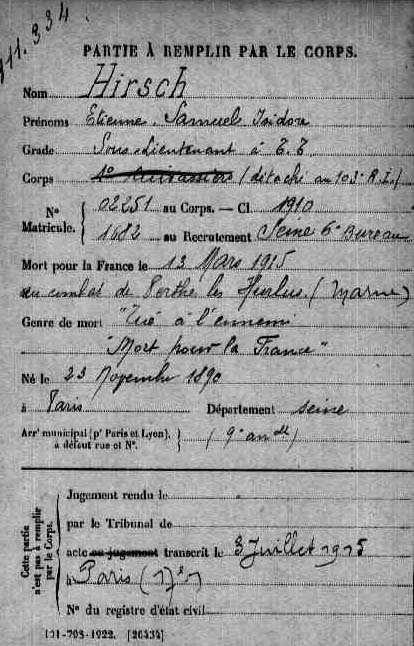 111.334
PARTIE À REMPLIR PAR LE CORPS.
Nom Hirsch
Prénoms Etienne. Samuel Isidore
Grade Sous-Lieutenant à T.T
Corps 1er Cuirassiers (détaché au 103e R.I.)
No 02251 au Corps. — Cl. 1910
Matricule. 1682 au Recrutement Seine 6e Bureau
Mort pour la France le 13 Mars 1915
au combat de Perthe les Hurlus (Marne)
Genre de mort "Tué à l'ennemi
"Mort pour la France"
Né le 23 Novembre 1890
à Paris Département Seine
Arrt municipal (pr Paris et Lyon), à défaut rue et No. (9e arrdt)
Cette partie n'est pas à remplir par le Corps.
Jugement rendu le
par le Tribunal de
acte ou jugement transcrit le 3 Juillet 1915
à Paris (17e)
No du registre d'état civil
101-708-1922. [26434]